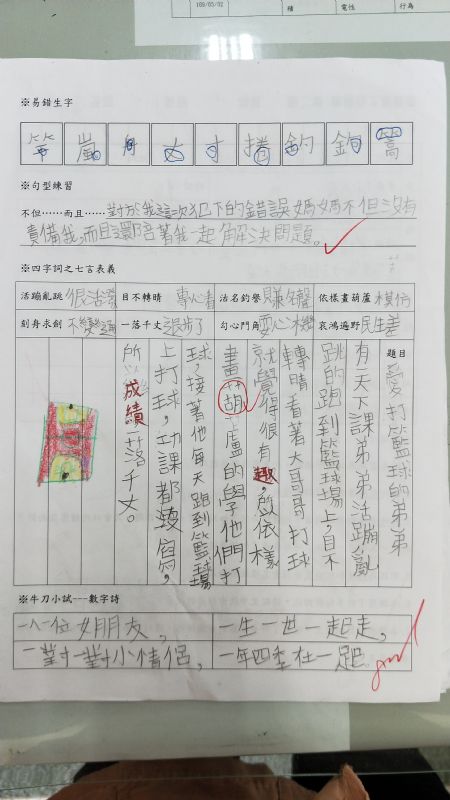 109/03/02
積
電性
行為
※易錯生字
竿 嵐 舟 丈 寸 捲 釣 鉤 篙
※句型練習
不但……而且……對於我這次犯下的錯誤媽媽不但沒有
責備我,而且還陪著我一起解決問題。
※四字詞之七言表義
活蹦亂跳 很活潑 目不轉睛 專心看 沽名釣譽 賺名聲 依樣畫葫蘆 模仿
刻舟求劍 不變通 一落千丈 退步了 勾心鬥角 耍心機 哀鴻遍野 民生差
題目 愛打籃球的弟弟
有天下課弟弟活蹦亂
跳的跑到籃球場上,目不
轉睛看著大哥哥打球
就覺得很有趣,所以依樣
畫葫蘆的學他們打
球,接著他每天跑到籃球場
上打球,功課都沒寫,
所以成績一落千丈。
※牛刀小試---數字詩
一人一位女朋友, 一生一世一起走,
一對一對小情侶, 一年四季在一起。
good